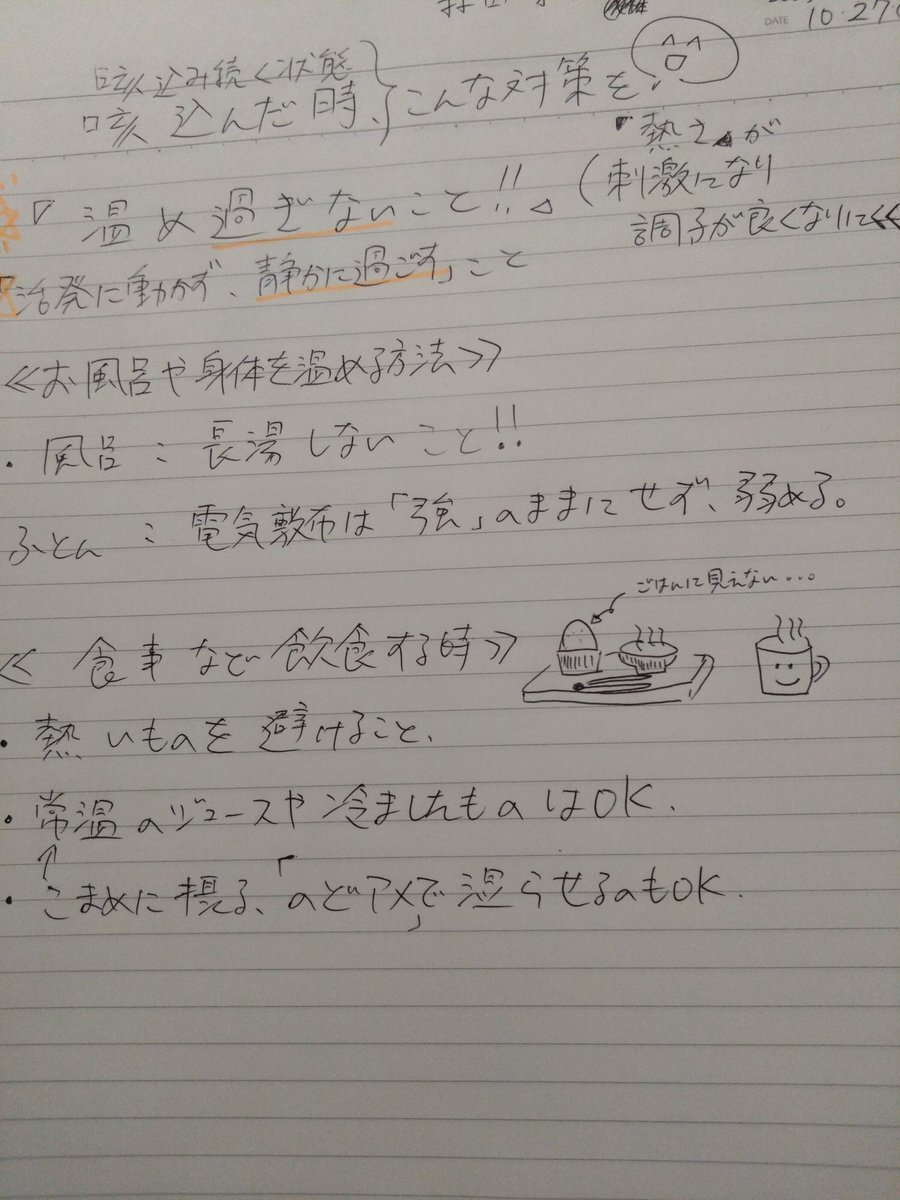 DATE 10・27(
咳込み続く状態
咳込んだ時、}こんな対策を、
『熱さ』が
刺激になり
調子が良くなりにくく
『温め過ぎないこと!!』(
『活発に動かず、静かに過ごす』こと
≪お風呂や身体を温める方法≫
・風呂:長湯しないこと!!
ふとん:電気敷布は「強」のままにせず、弱める。
ごはんに見えない...
≪食事など飲食する時≫
・熱いものを避けること、
・常温のジュースや冷ましたものはOK.
↑
・こまめに摂る、「のどアメ」で湿らせるのもOK.